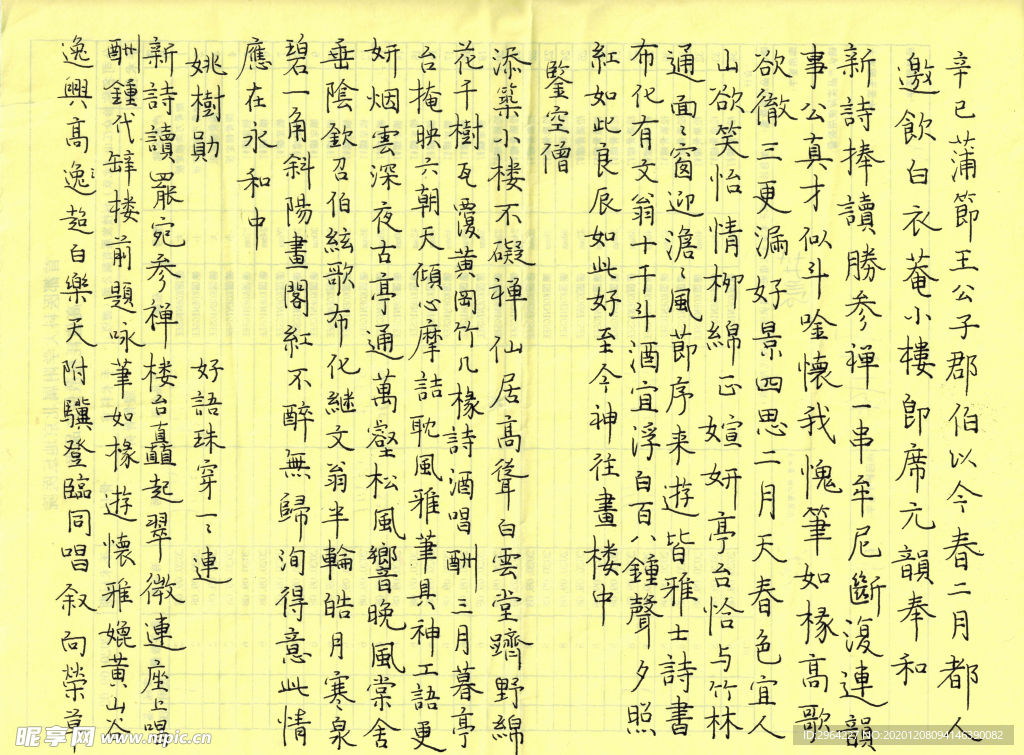 辛巳蒲節王公子郡伯以今春二月都人
邀飲白衣菴小樓即席元韻奉和
新詩捧讀勝参禅一串牟尼斷復連韻
事公真才似斗唫懷我愧筆如椽高歌
欲徹三更漏好景四思二月天春色宜人
山欲笑怡情柳綿正媗妍亭台恰与竹林
通面〻窗迎澹〻風節序来遊皆雅士詩書
布化有文翁十千斗酒宜浮白百八鐘聲夕照
紅如此良辰如此好至今神往畫楼中
鑒空僧
添築小楼不礙禅仙居高聳白雲堂躋野綿
花千樹瓦覆黄岡竹几椽詩酒唱酬三月暮亭
台掩映六朝天傾心摩詰耽風雅筆具神工語更
妍烟雲深夜古亭通萬壑松風響晚風棠舍
垂陰欽召伯絃歌布化継文翁半輪皓月寒泉
碧一角斜陽畫閣紅不醉無歸洵得意此情
應在永和中
姚樹員 好語珠穿一〻連
新詩讀罷宛参禅楼台矗起翠微連座上唱
酬鍾代罅楼前題咏筆如椽遊懷雅媲黄山谷
逸興高逸超白樂天附驥登臨同唱叙向榮草
昵享网 www.nipic.cn
ID:2964227 NO:20201208094146390082